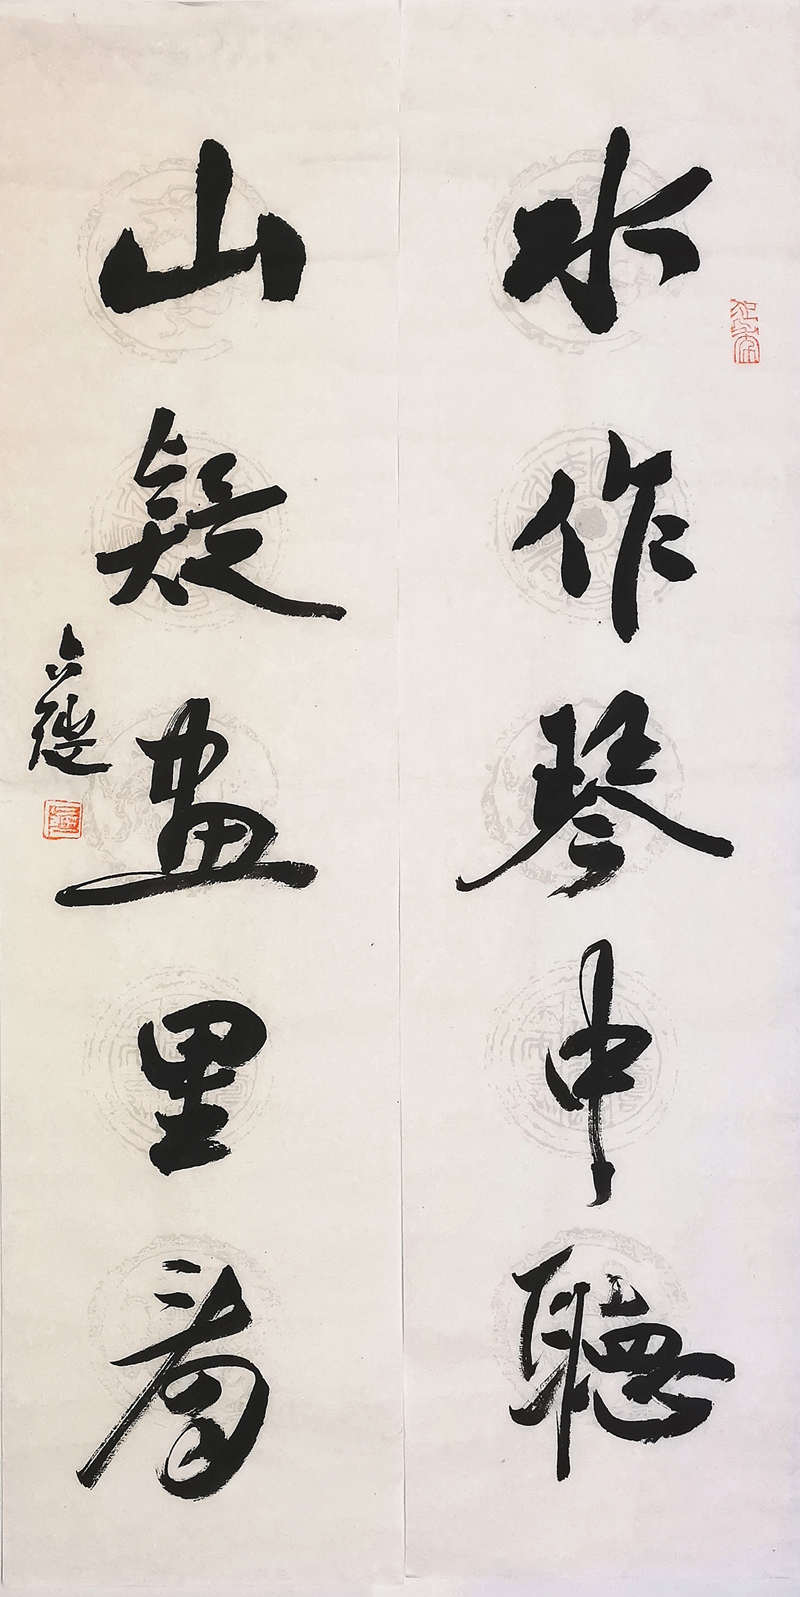 水作琴中聽
山疑畫里看